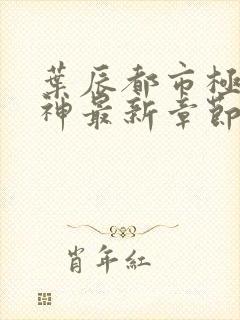 葉辰都市極
神最新章節
肖年紅